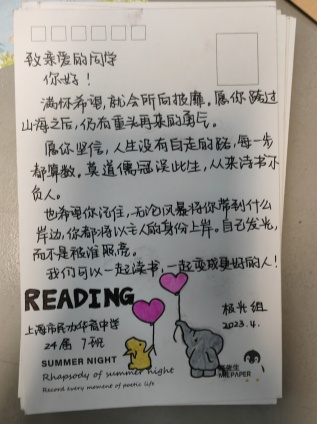 致亲爱的同学
你好！
满怀希望,就会所向披靡。愿你跨过
山海之后,仍有重头再来的勇气。
愿你坚信,人生没有白走的路,每一步
都算数。莫道儒冠误此生,从来诗书不
负人。
也希望你记住,无论风暴将你带到什么
岸边,你都将以主人的身份上岸。自己发光,
而不是被谁照亮。
我们可以一起读书,一起变成更好的人!
READING
极光组
2023.4.
上海市民办华育中学
24届 7班
SUMMER NIGHT
Rhapsody of summer night
Record every moment of poetic life
先生
PAPER